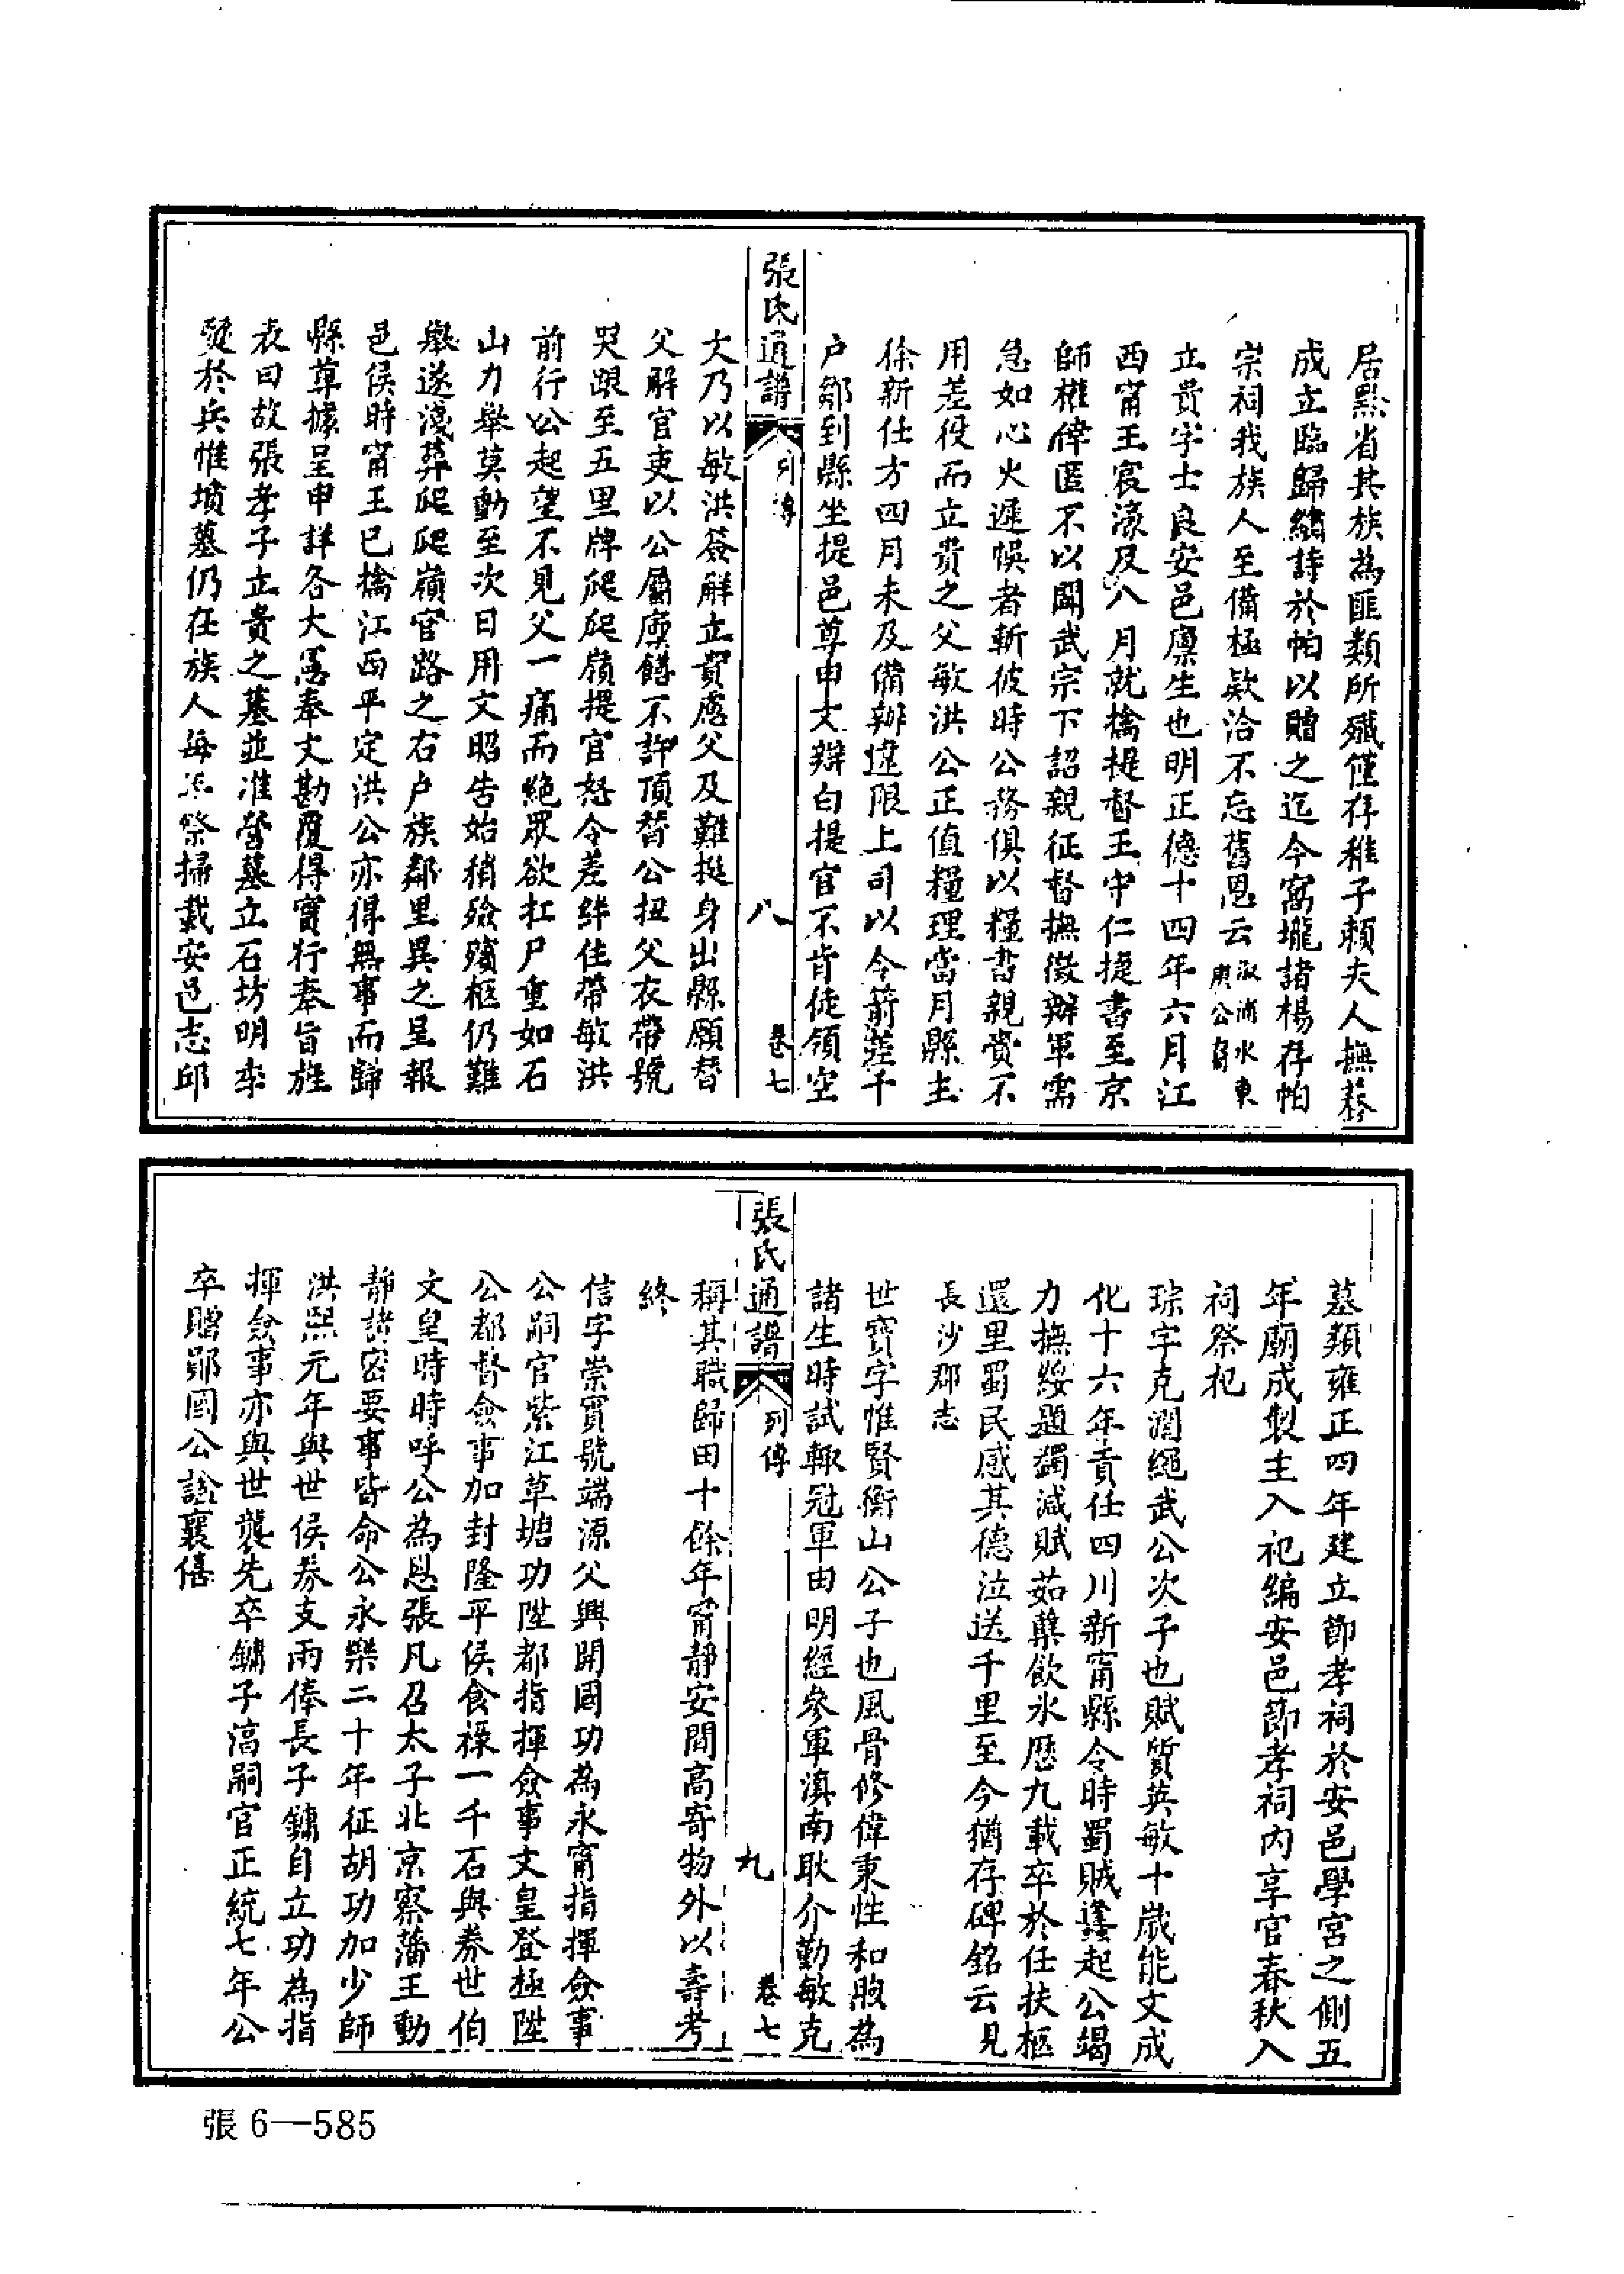 居黔省其族為匪類所殲僅存稚子賴夫人撫養
成立臨歸繡詩於帕以贈之迄今窩壠諸楊存帕
宗祠我族人至備極欵洽不忘舊恩云溆浦水東庚公房
立貴字士良安邑廪生也明正德十四年六月江
西甯王宸濠反八月就擒提督王守仁捷書至京
師權倖匿不以聞武宗下詔親征督撫徵辦軍需
急如心火遲悞者斬彼時公務俱以糧書親賫不
用差役而立貴之父敏洪公正值糧理當月縣主
徐新任方四月未及備辦違限上司以令箭差千
户鄒到縣坐提邑尊申文辯白提官不肯徒領空
張氏通譜 列傳 八 卷七
文乃以敏洪簽解立貴慮父及難挺身出縣願替
父解官吏以公屬廪餼不許頂替公扭父衣帶號
哭跟至五里牌爬爬嶺提官怒令差絆住帶敏洪
前行公起望不見父一痛而絶眾欲扛尸重如石
山力舉莫動至次日用文昭告始稍殮殯柩仍難
舉遂淺葬爬爬嶺官路之右户族鄰里異之呈報
邑侯時甯王已擒江西平定洪公亦得無事而歸
縣尊據呈申詳各大憲奉文勘覆得實行奉旨旌
表曰故張孝子立貴之墓並准營墓立石坊明季
燹於兵惟墳墓仍在族人每年祭掃載安邑志邱
墓類雍正四年建立節孝祠於安邑學宮之側五
年廟成製主入祀編安邑節孝祠内享官春秋入
祠祭祀
琮字克潤繩武公次子也賦質英敏十歲能文成
化十六年貢任四川新甯縣令時蜀賊蠭起公竭
力撫綏題蠲減賦茹蘗飲氷歴九載卒於任扶柩
還里蜀民感其德泣送千里至今猶存碑銘云見
長沙郡志
世寶字惟賢衡山公子也風骨修偉秉性和煦為
諸生時試輒冠軍由明經參軍滇南耿介勤敏克
張氏通譜 列傳 九 卷七
稱其職歸田十餘年甯靜安閒高寄物外以壽考
終
信字崇實號端源父興開國功為永甯指揮僉事
公嗣官紫江草塘功陞都指揮僉事文皇登極陞
公都督僉事加封隆平侯食祿一千石與券世伯
文皇時時呼公為恩張凡召太子北京察藩王動
靜諸密要事皆命公永樂二十年征胡功加少師
洪熙元年與世侯券支兩俸長子鏞自立功為指
揮僉事亦與世襲先卒鏞子淯嗣官正統七年公
卒贈鄖國公諡襄僖
張6—585